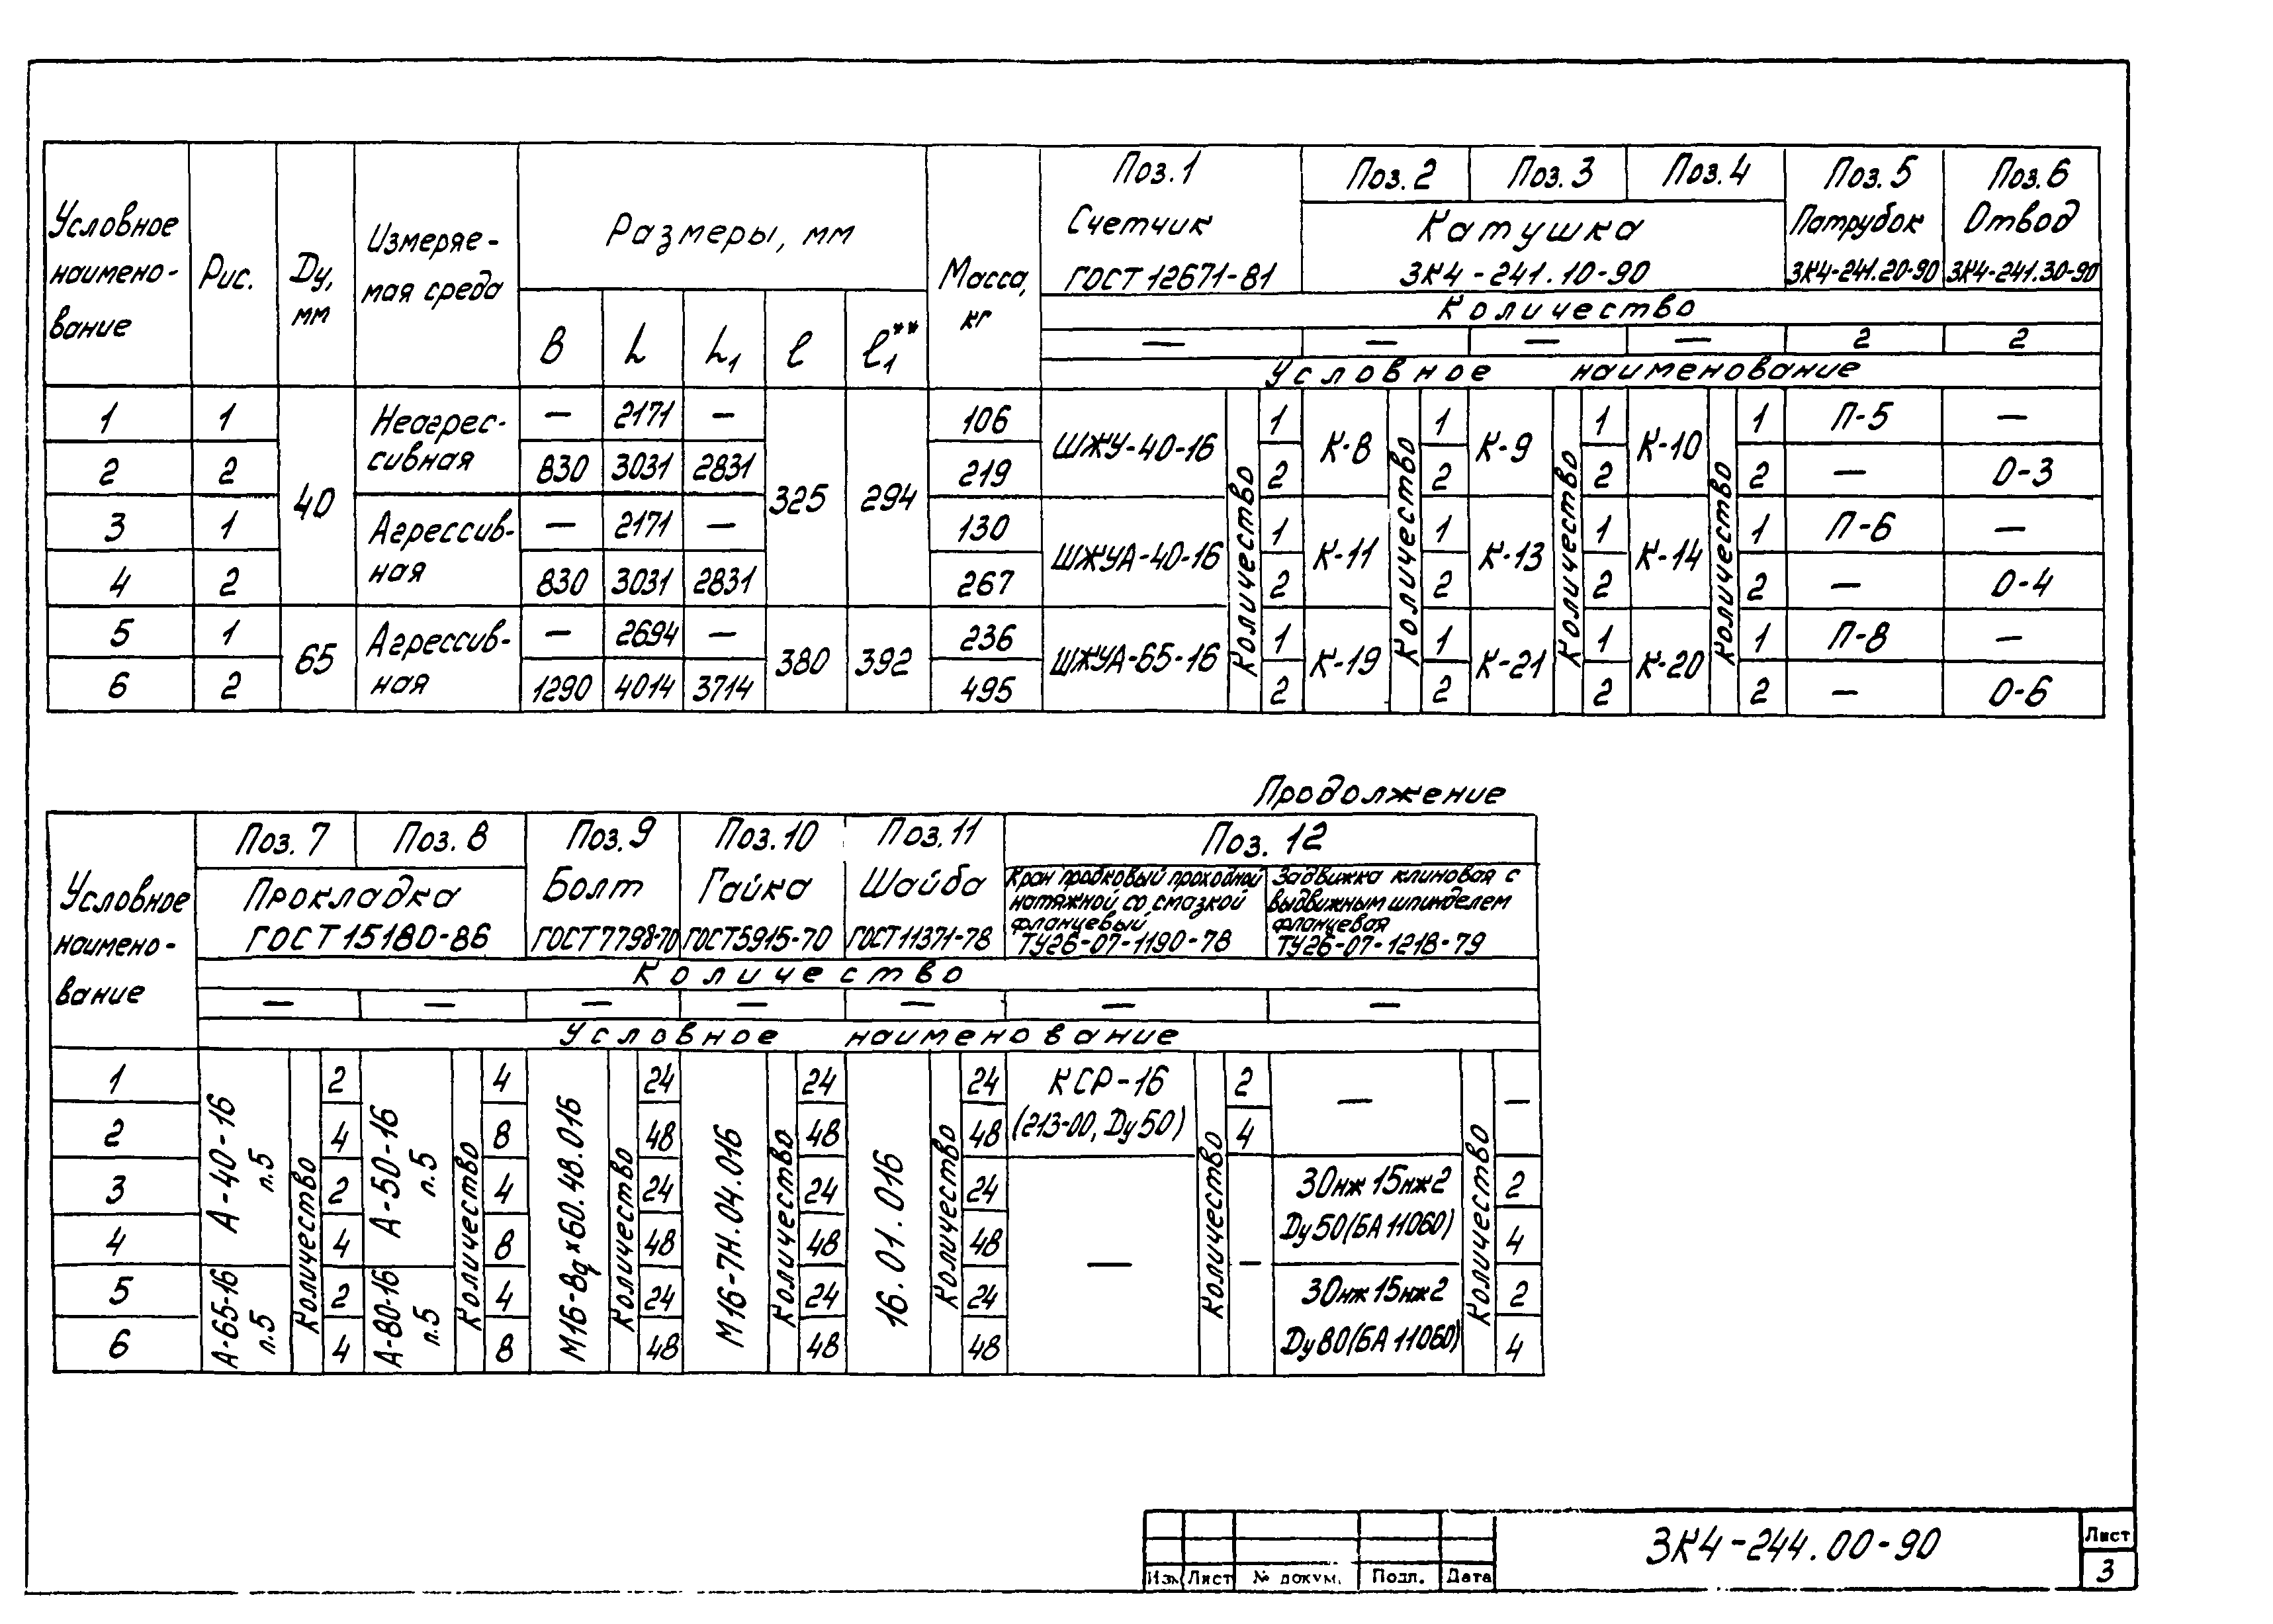 Условное наимено-вание Рис. Dу, мм Измеряе-мая среда Размеры, мм Масса, кг Поз.1 Поз.2 Поз.3 Поз.4 Поз.5 Поз.6
Счетчик Катушка Патрубок Отвод
ГОСТ 12671-81 ЗК4-241.10-90 ЗК4-241.20-90 ЗК4-241.30-90
B L L1 ℓ ℓ1**
Количество
— — — — 2 2
Условное наименование
1 1 40 Неагрес-сивная — 2171 — 325 294 106 ШЖУ-40-16 Количество 1 К-8 Количество 1 К-9 Количество 1 К-10 Количество 1 П-5 —
2 2 830 3031 2831 219 2 2 2 2 — О-3
3 1 Агрессив-ная — 2171 — 130 ШЖУА-40-16 1 К-11 1 К-13 1 К-14 1 П-6 —
4 2 830 3031 2831 267 2 2 2 2 — О-4
5 1 65 Агрессив-ная — 2694 — 380 392 236 ШЖУА-65-16 1 К-19 1 К-21 1 К-20 1 П-8 —
6 2 1290 4014 3714 495 2 2 2 2 — О-6
Продолжение
Условное наимено-вание Поз.7 Поз.8 Поз.9 Поз.10 Поз.11 Поз.12
Прокладка Болт Гайка Шайба
Кран пробковый проходной натяжной со смазкой фланцевый
Задвижка клиновая с выдвижным шпинделем фланцевая
ГОСТ 15180-86 ГОСТ 7798-70 ГОСТ 5915-70 ГОСТ 11371-78 ТУ26-07-1190-78 ТУ26-07-1218-79
Количество
— — — — — — —
Условное наименование
1 А-40-16 п.5 Количество 2 А-50-16 п.5 Количество 4 М16-8g×60.48.016 Количество 24 М16-7Н.04.016 Количество 24 16.01.016 Количество 24 КСР-16 (213-00, Dу50) Количество 2 — Количество —
2 4 8 48 48 48 4
3 2 4 24 24 24 — — 30нж15нж2 Dу50(БА11060) 2
4 4 8 48 48 48 4
5 А-65-16 п.5 2 А-80-16 п.5 4 24 24 24 30нж15нж2 Dу80(БА11060) 2
6 4 8 48 48 48 4
ЗК4-244.00-90
Лист
3
Изм Лист № докум. Подп. Дата